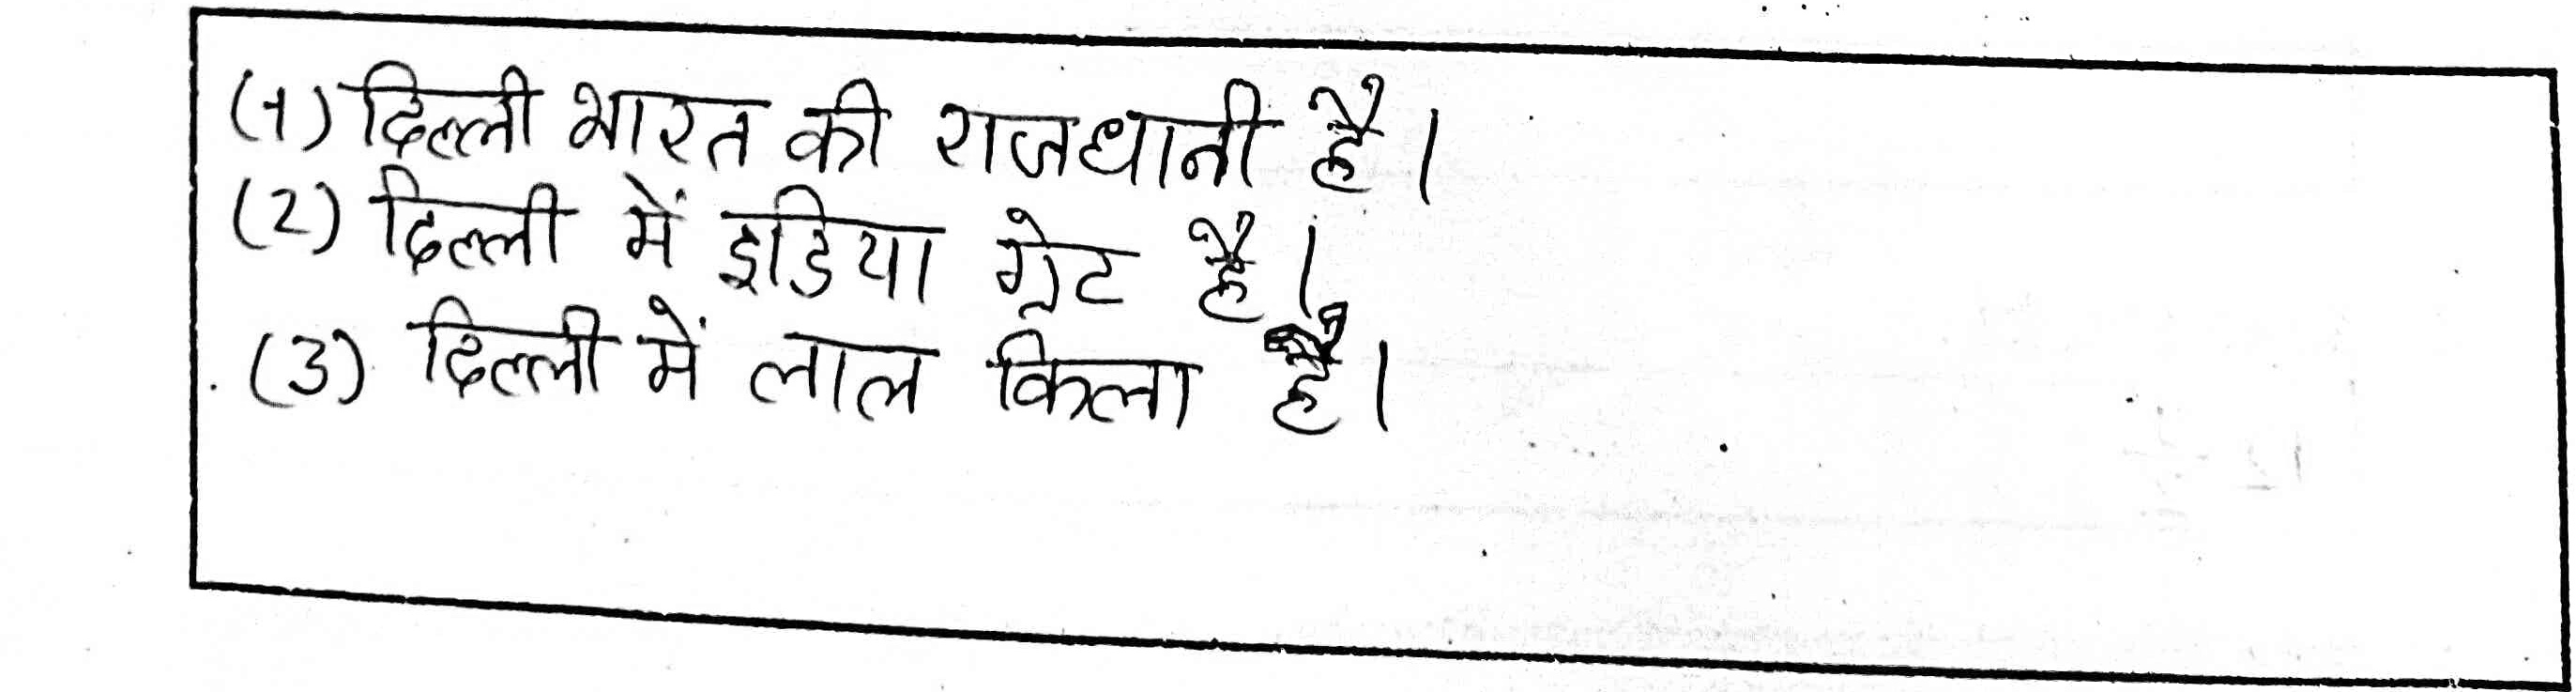 (1) दिल्ली भारत की राजधानी है।
(2) दिल्ली में इडिया गेट है।
(3) दिल्ली में लाल किला है।